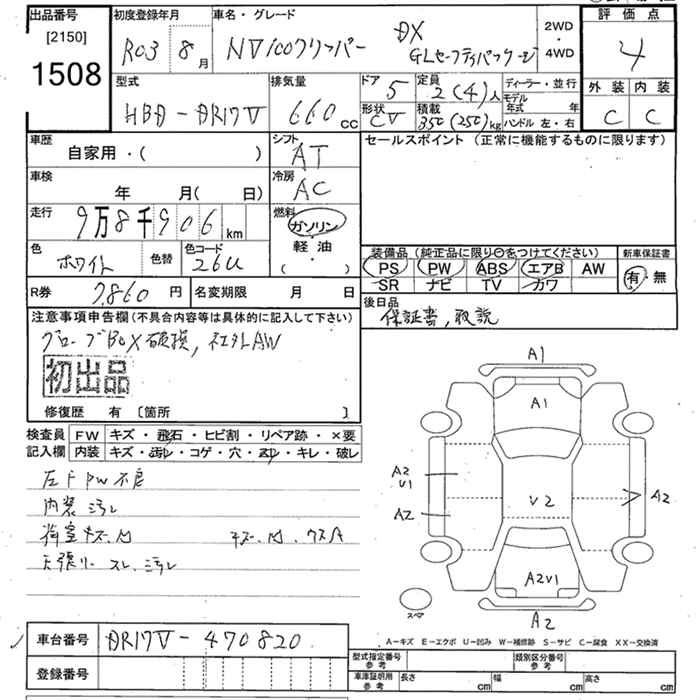 出品番号
[2150]
1508
初度登録年月
R03 8月
車名・グレード
NV100クリッパー
DX
GLセーフティパッケージ
2WD
・
4WD
評価点
4
外装 内装
C C
型式
HBD-DR17V
排気量
660cc
ドア
5
定員
2(4)人
形状
CV
積載
350(250)kg
ディーラー・並行
モデル年式 年
ハンドル 左・右
車歴
自家用・( )
シフト
AT
車検
年 月( 日)
冷房
AC
走行
9万8千906km
燃料
ガソリン
・
軽油
( )
色
ホワイト
色替
色コード
26U
R券 7,860円
名変期限 月 日
セールスポイント(正常に機能するものに限ります)
装備品(純正品に限り○をつけてください)
PS PW ABS エアB AW
SR ナビ TV カワ
新車保証書
有・無
後日品
保証書,取説
注意事項申告欄(不具合内容等は具体的に記入して下さい)
グローブBOX破損,社外AW
初出品
修復歴 有〔箇所 〕
検査員記入欄
FW キズ・飛石・ヒビ割・リペア跡・×要
内装 キズ・汚レ・コゲ・穴・スレ・キレ・破レ
左F PW不良
内装 汚レ
荷室キズ.凹 キズ.凹.ワスA
天張リー スレ.汚レ
A1
A1
A2
V1
A2
V2
A2
A2V1
スペア
A2
A-キズ E-エクボ U-凹み W-補修跡 S-サビ C-腐食 XX-交換済
車台番号 DR17V-470820
登録番号
型式指定番号参考
類別区分番号参考
車庫証明用参考
長さ cm 幅 cm 高さ cm